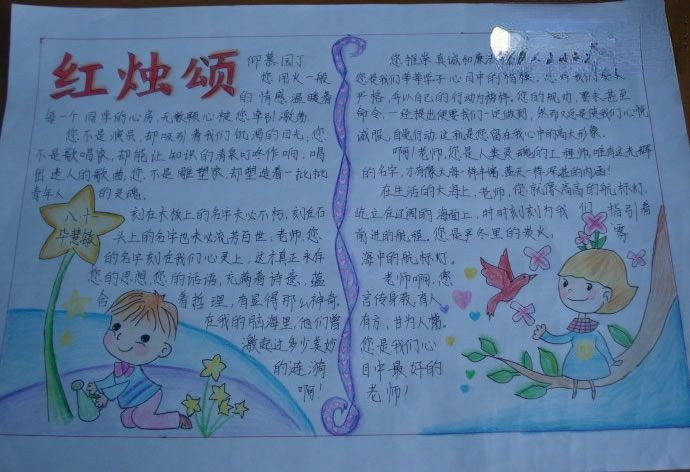 红烛颂
仰慕园丁
您用火一般
的情感温暖着
每一个同学的心房,无数颗心被您牵引激荡
您不是演员,却吸引着我们饥渴的目光,您
不是歌唱家,却能让知识的清泉叮咚作响,唱
出迷人的歌曲,您不是雕塑家,却塑造着一批批
青年人的灵魂。
刻在木板上的名字未必不朽,刻在石
头上的名字也未必流芳百世,老师,您
的名字刻在我们心灵上,这才真正永存
您的思想,您的话语,充满着诗意,蕴
含着哲理,有显得那么神奇,
在我的脑海里,他们曾
激起过多少美妙
的涟漪
啊!
八十
您推崇真诚和廉洁
您是我们莘莘学子心目中的
严格,并以自己的行动为榜样。您的
命令,一经提出便要我们一定做到,然而又总是使我们心悦
诚服,自觉行动,这就是您留在我心中的高大形象。
啊!老师,您是人类灵魂的工程师,唯有这光辉
的名字,才有像大海一样丰富,蓝天一样深湛的内涵!
在生活的大海上,老师,您就像高高的航标灯,
屹立在辽阔的海面上,时时刻刻为我们指引着
前进的航程。您是严冬里的炭火,雾
海中的航标灯。
老师啊,您
言传身教,育人
有方,甘为人梯。
您是我们心
目中最好的
老师!